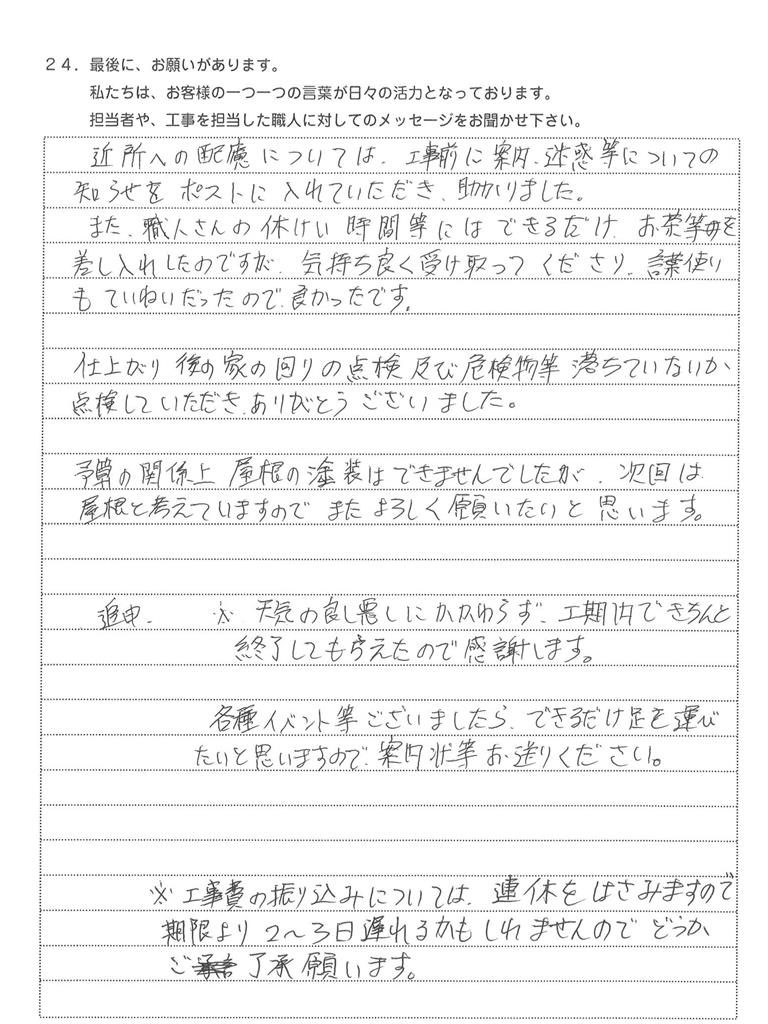 24．最後に、お願いがあります。
私たちは、お客様の一つ一つの言葉が日々の活力となっております。
担当者や、工事を担当した職人に対してのメッセージをお聞かせ下さい。
近所への配慮については、工事前に案内、迷惑等についての
知らせをポストに入れていただき、助かりました。
また、職人さんの休けい時間等にはできるだけ、お茶等を
差し入れしたのですが、気持ち良く受け取ってくださり、言葉使い
もていねいだったので、良かったです。
仕上がり後の家の回りの点検及び危検物等落ちていないか
点検していただき、ありがとうございました。
予算の関係上屋根の塗装はできませんでしたが、次回は
屋根と考えていますのでまたよろしく願いたいと思います。
追申、 ※天気の良し悪しにかかわらず、工期内できちんと
終了してもらえたので感謝します。
各種イベント等ございましたら、できるだけ足を運び
たいと思いますので、案内状等お送りください。
※工事費の振り込みについては、連休をはさみますので
期限より2〜3日遅れるかもしれませんのでどうか
ご了承願います。